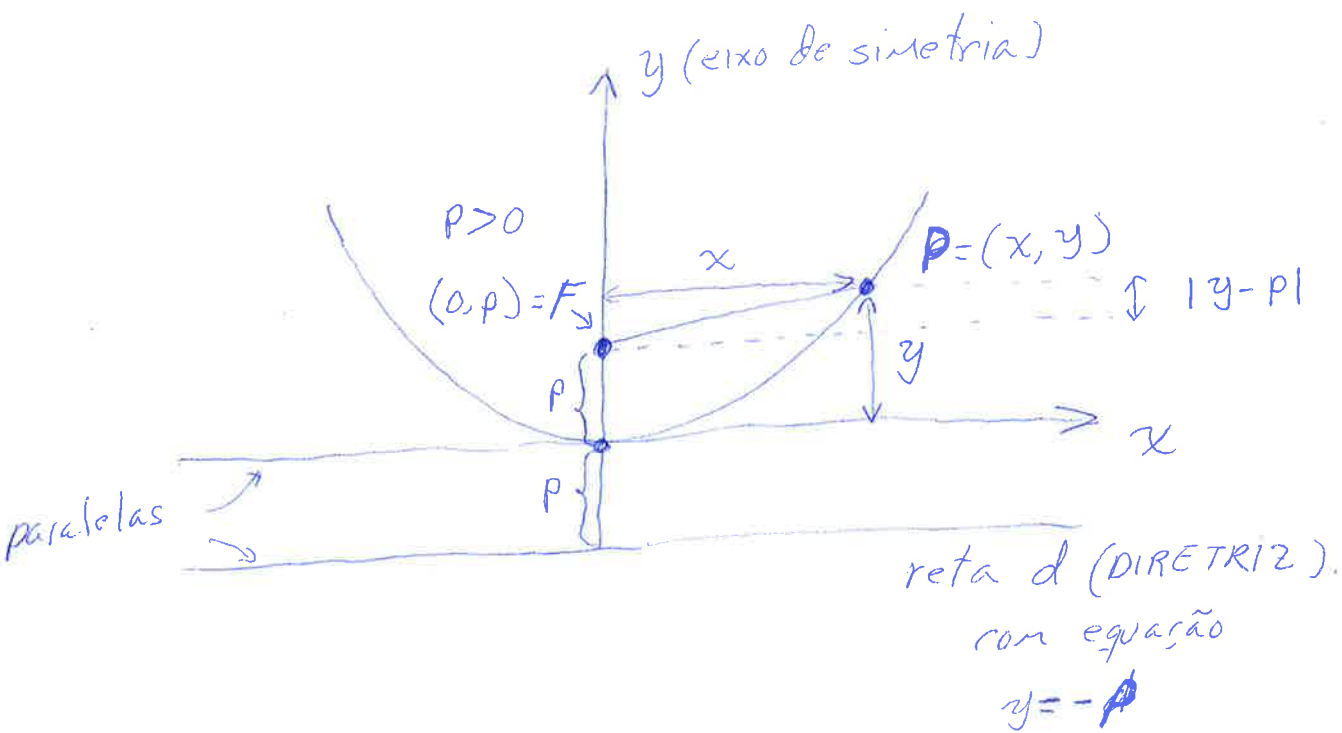 y (eixo de simetria)
p>0
x
P=(x, y)
(0,p)=F
|y-p|
y
p
x
p
paralelas
reta d (DIRETRIZ).
com equação
y=-p